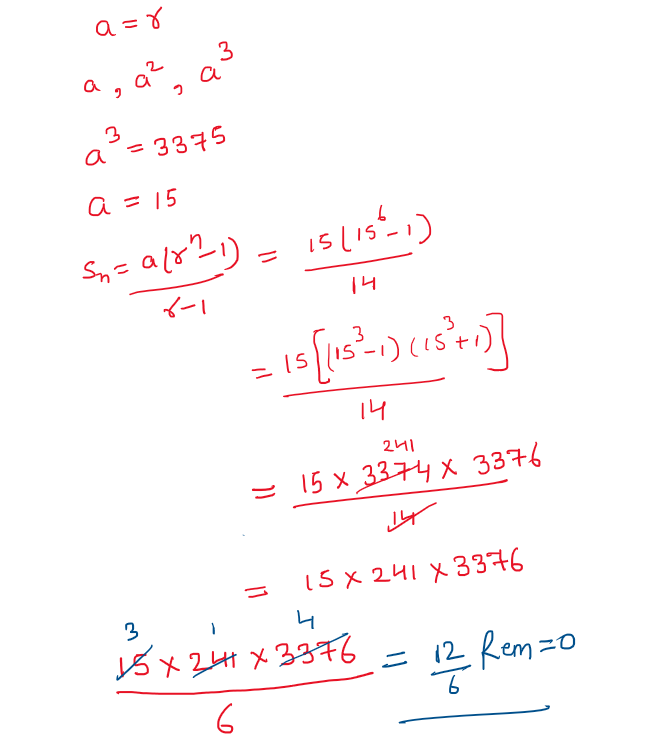 a = r
a , a² , a³
a³ = 3375
a = 15
Sn = a(rⁿ-1) / r-1 = 15(15⁶-1) / 14
= 15[(15³-1)(15³+1)] / 14
241
= 15 × 3374 × 3376 / 14
= 15 × 241 × 3376
3 1 4
15 × 241 × 3376 / 6 = 12/6 Rem=0